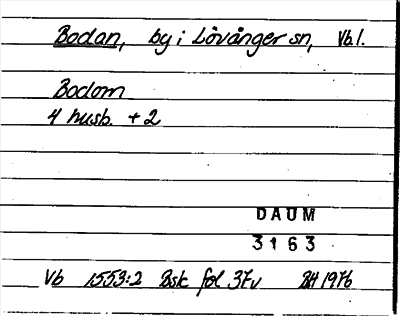 Bodan, by i Lövånger sn, Vb l.
Bodom
4 husb. + 2
DAUM
3163
Vb 1553:2 Bsk fol 37v BH 1976